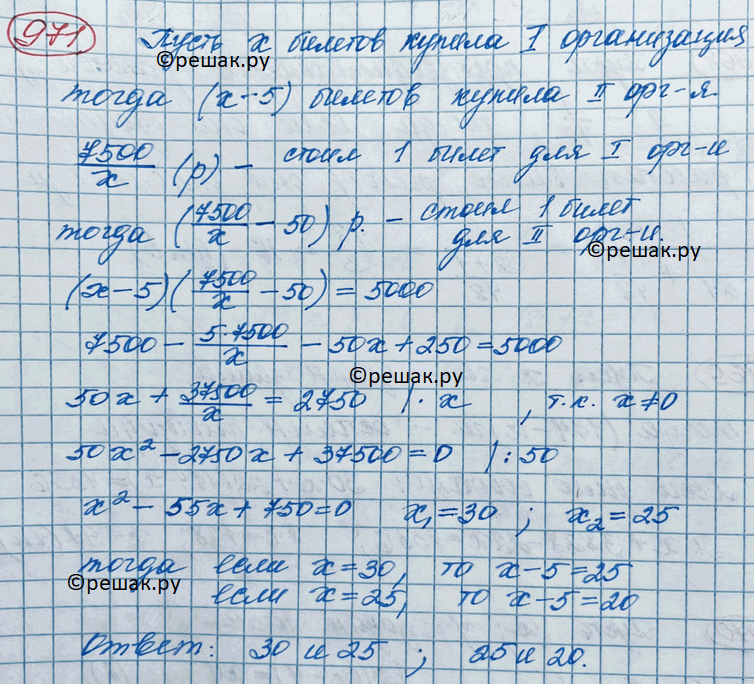 971 Пусть x билетов купила I организация
©решак.ру
тогда (x-5) билетов купила II орг-я.
7500/x (р) - стоил 1 билет для I орг-и
тогда (7500/x - 50) р. - стоил 1 билет для II орг-и.
©решак.ру
(x-5)(7500/x - 50) = 5000
7500 - 5·7500/x - 50x + 250 = 5000
©решак.ру
50x + 37500/x = 2750 |· x , т.к. x≠0
50x² - 2750x + 37500 = 0 |:50
x² - 55x + 750 = 0 x₁=30 ; x₂=25
тогда если x=30, то x-5=25
©решак.ру
если x=25, то x-5=20
Ответ: 30 и 25 ; 25 и 20.